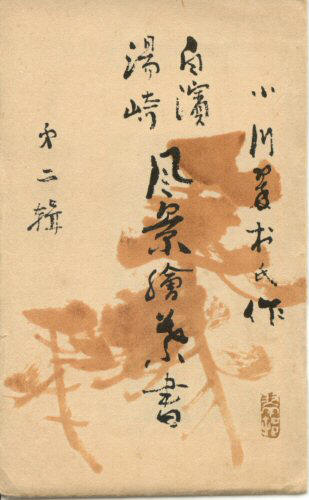 小川翠村氏作
白濱
湯崎
風景繪葉書
第二輯